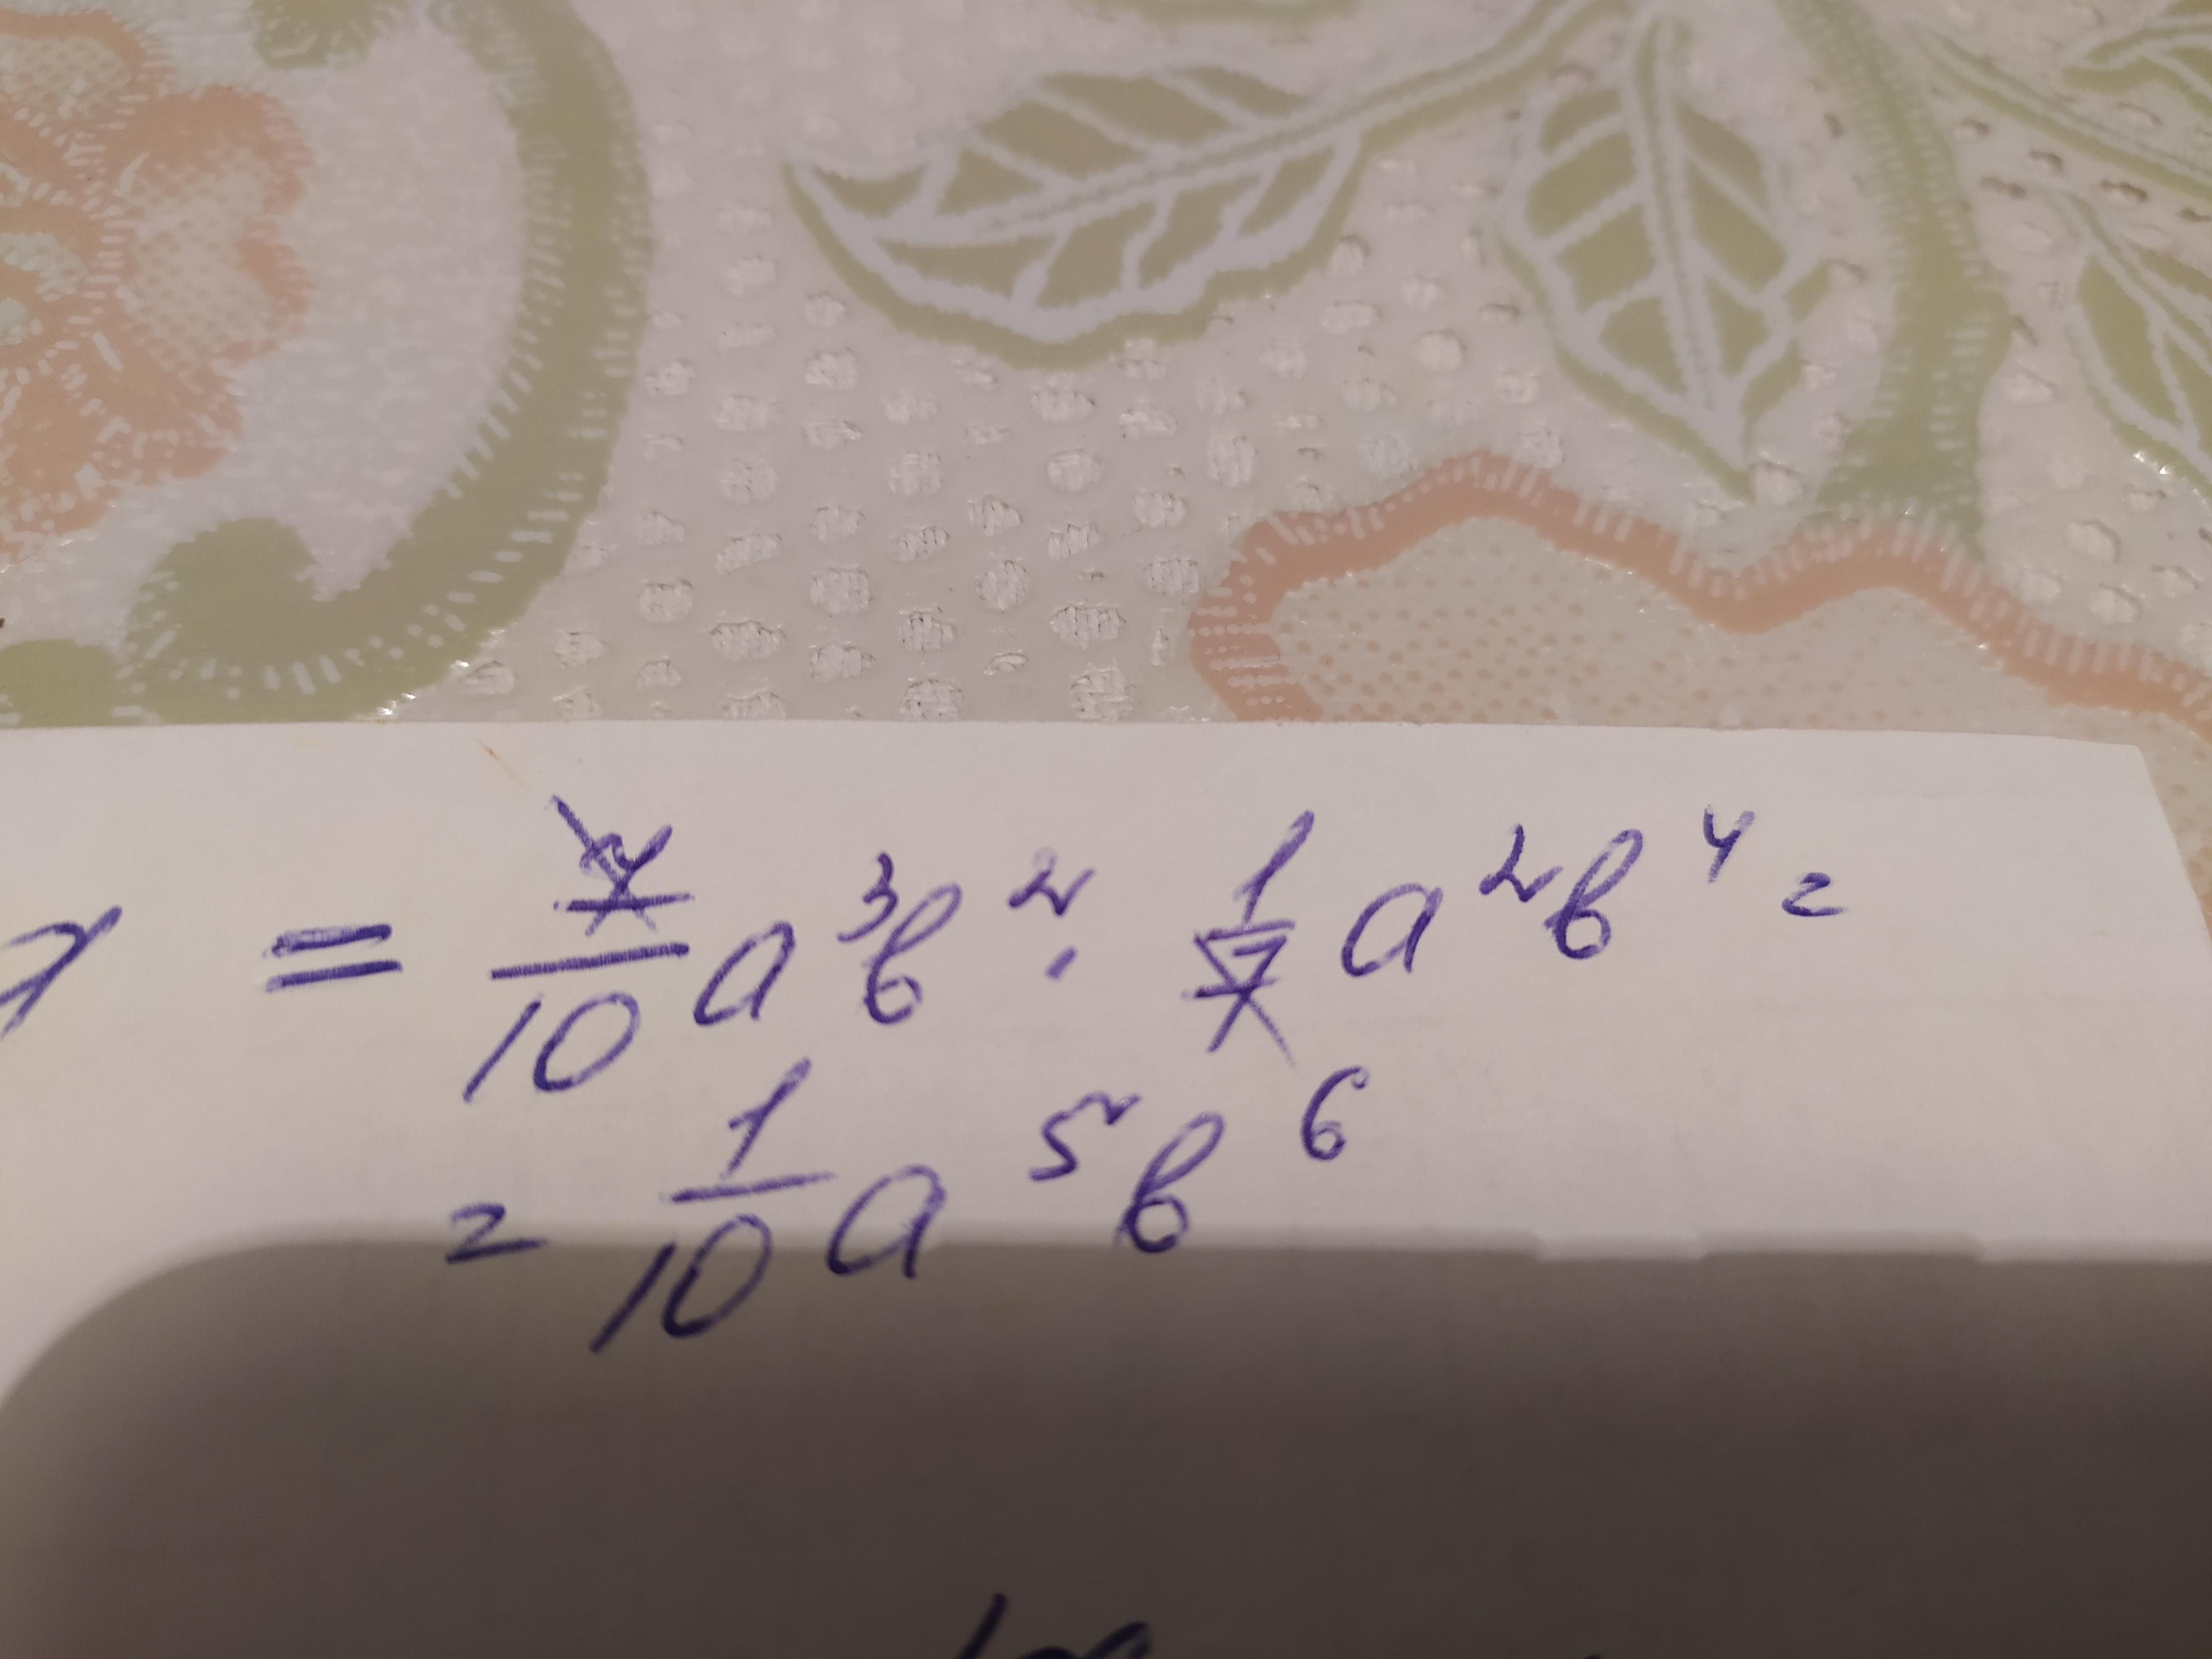 = 7/10 a³b² · 1/7 a²b⁴ =
= 1/10 a⁵b⁶